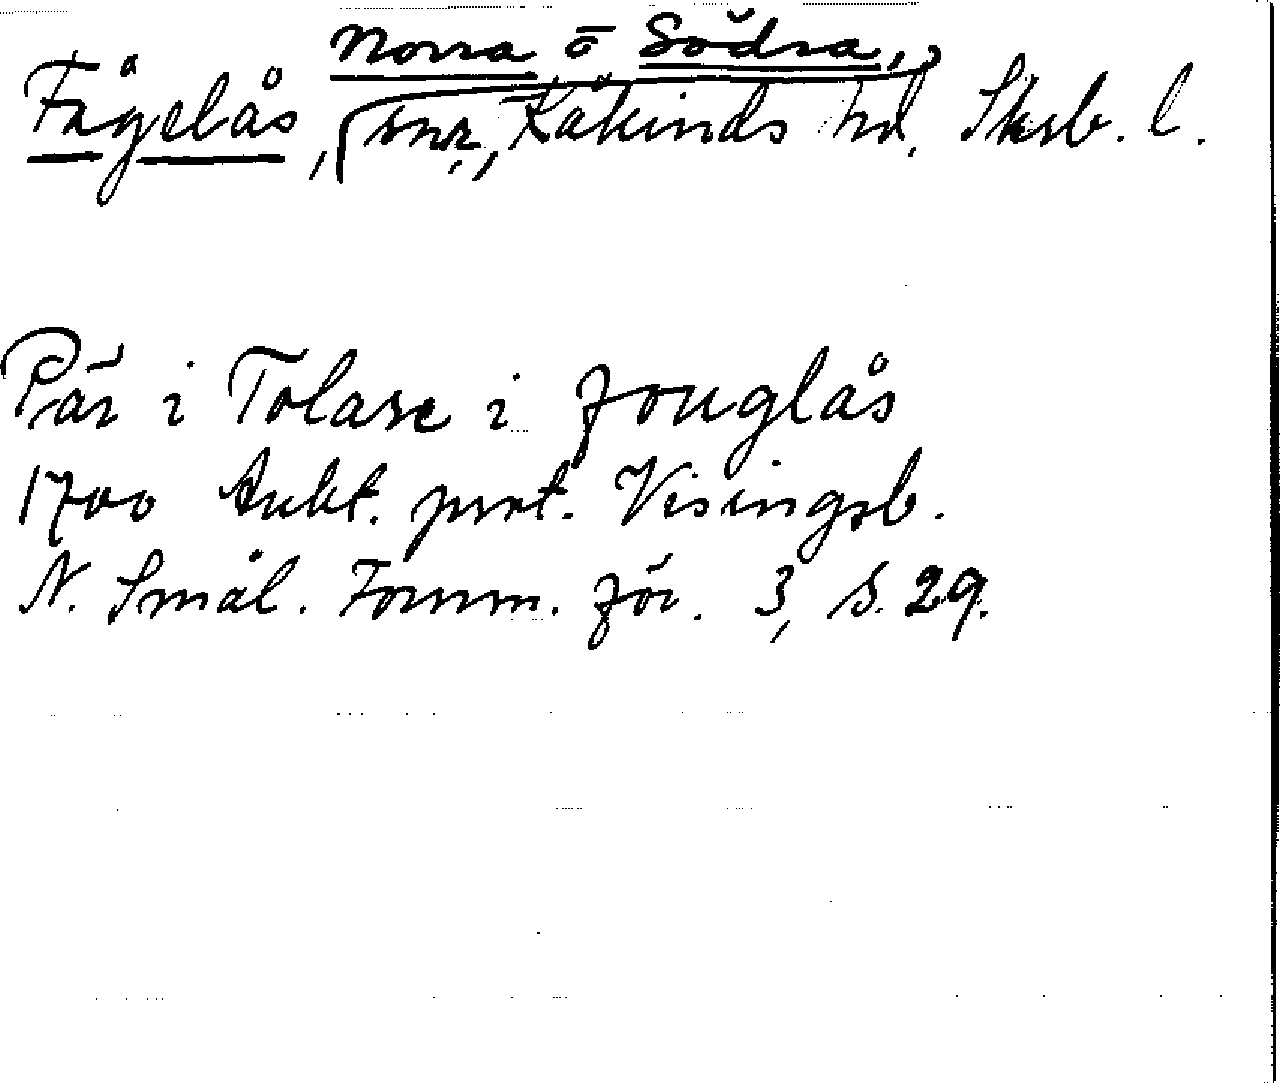 Fågelås, Norra o Södra,
snr, Kåkinds hd, Skrb. l.
Pär i Tolare i fouglås
1700 Aukt. prot. Visingsb.
N. Smål. Fornm. för. 3, s. 29.